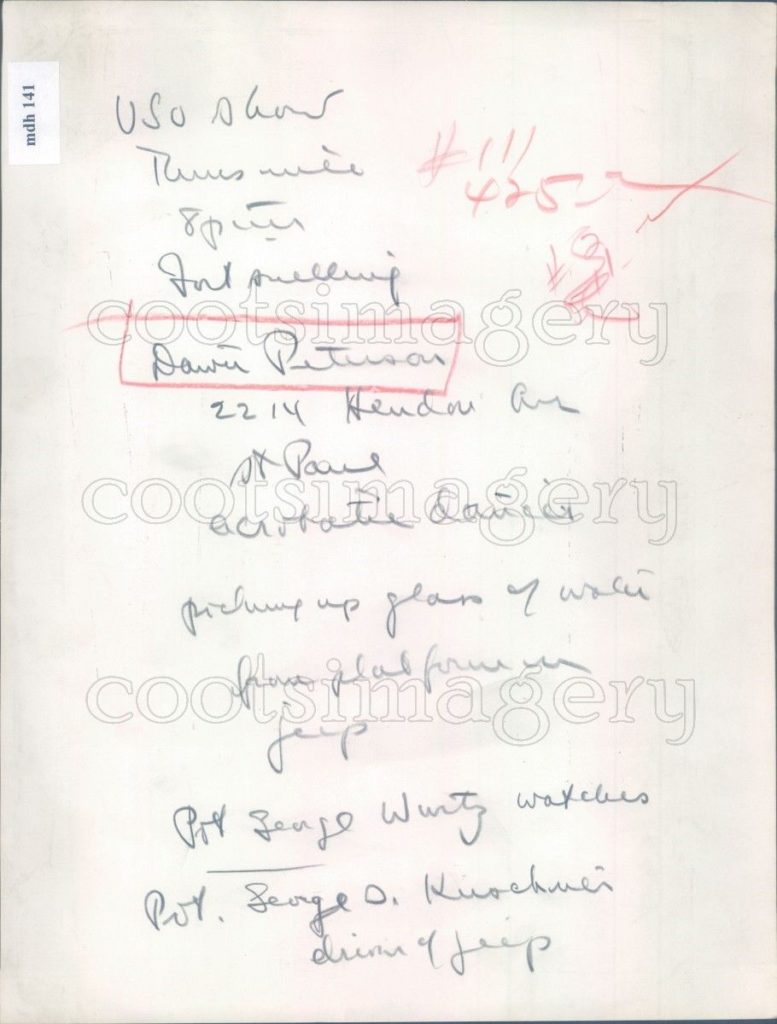 mdh 141
USO show
Thurs nite
8 p
Fort Snelling
#111
425
cootsimagery
Peterson
2214 Hendon Ave
St Paul
acrobatic dancer
cootsimagery
picking up glass of water
from platform on
cootsimagery
jeep
Pvt George Wurtz watches
Pvt. George D.
driver of jeep